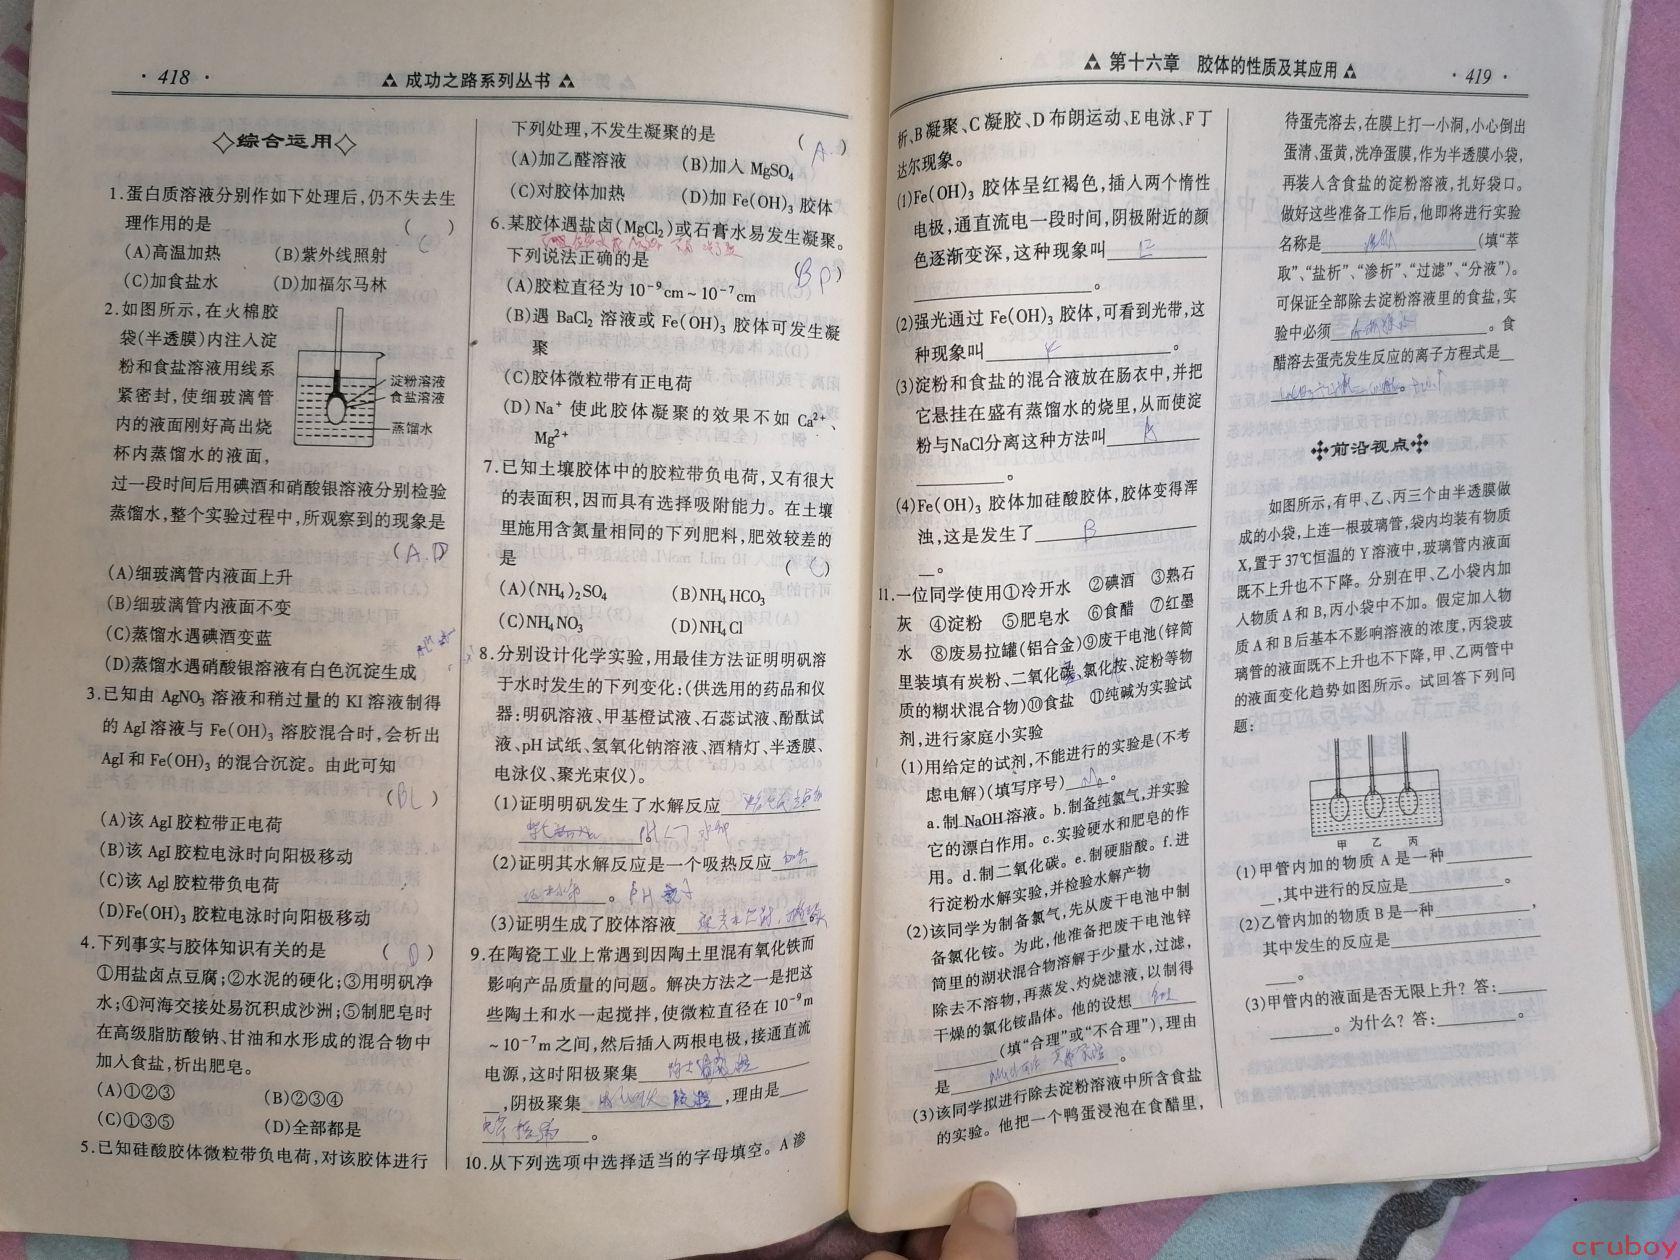 · 418 ·
成功之路系列丛书
◇综合运用◇
1.蛋白质溶液分别作如下处理后,仍不失去生
理作用的是 ( C )
(A)高温加热 (B)紫外线照射
(C)加食盐水 (D)加福尔马林
2.如图所示,在火棉胶
袋(半透膜)内注入淀
粉和食盐溶液用线系
紧密封,使细玻璃管
内的液面刚好高出烧
杯内蒸馏水的液面,
淀粉溶液
食盐溶液
蒸馏水
过一段时间后用碘酒和硝酸银溶液分别检验
蒸馏水,整个实验过程中,所观察到的现象是
(A.D)
(A)细玻璃管内液面上升
(B)细玻璃管内液面不变
(C)蒸馏水遇碘酒变蓝
(D)蒸馏水遇硝酸银溶液有白色沉淀生成
3.已知由 AgNO₃ 溶液和稍过量的 KI 溶液制得
的 AgI 溶液与 Fe(OH)₃ 溶胶混合时,会析出
AgI 和 Fe(OH)₃ 的混合沉淀。由此可知
(BC)
(A)该 AgI 胶粒带正电荷
(B)该 AgI 胶粒电泳时向阳极移动
(C)该 Agl 胶粒带负电荷
(D)Fe(OH)₃ 胶粒电泳时向阳极移动
4.下列事实与胶体知识有关的是 ( D )
①用盐卤点豆腐;②水泥的硬化;③用明矾净
水;④河海交接处易沉积成沙洲;⑤制肥皂时
在高级脂肪酸钠、甘油和水形成的混合物中
加入食盐,析出肥皂。
(A)①②③ (B)②③④
(C)①③⑤ (D)全部都是
5.已知硅酸胶体微粒带负电荷,对该胶体进行
下列处理,不发生凝聚的是 ( A. )
(A)加乙醛溶液 (B)加入 MgSO₄
(C)对胶体加热 (D)加 Fe(OH)₃ 胶体
6.某胶体遇盐卤(MgCl₂)或石膏水易发生凝聚。
下列说法正确的是 (B D)
(A)胶粒直径为 10⁻⁹cm ~ 10⁻⁷cm
(B)遇 BaCl₂ 溶液或 Fe(OH)₃ 胶体可发生凝
聚
(C)胶体微粒带有正电荷
(D)Na⁺ 使此胶体凝聚的效果不如 Ca²⁺、
Mg²⁺
7.已知土壤胶体中的胶粒带负电荷,又有很大
的表面积,因而具有选择吸附能力。在土壤
里施用含氮量相同的下列肥料,肥效较差的
是 ( C )
(A)(NH₄)₂SO₄ (B)NH₄HCO₃
(C)NH₄NO₃ (D)NH₄Cl
8.分别设计化学实验,用最佳方法证明明矾溶
于水时发生的下列变化:(供选用的药品和仪
器:明矾溶液、甲基橙试液、石蕊试液、酚酞试
液、pH 试纸、氢氧化钠溶液、酒精灯、半透膜、
电泳仪、聚光束仪)。
(1)证明明矾发生了水解反应
。
(2)证明其水解反应是一个吸热反应
。
(3)证明生成了胶体溶液
9.在陶瓷工业上常遇到因陶土里混有氧化铁而
影响产品质量的问题。解决方法之一是把这
些陶土和水一起搅拌,使微粒直径在 10⁻⁹m
~ 10⁻⁷m 之间,然后插人两根电极,接通直流
电源,这时阳极聚集
,阴极聚集 ,理由是
。
10.从下列选项中选择适当的字母填空。A 渗
第十六章 胶体的性质及其应用
· 419 ·
析、B 凝聚、C 凝胶、D 布朗运动、E 电泳、F 丁
达尔现象。
(1)Fe(OH)₃ 胶体呈红褐色,插人两个惰性
电极,通直流电一段时间,阴极附近的颜
色逐渐变深,这种现象叫 E
。
(2)强光通过 Fe(OH)₃ 胶体,可看到光带,这
种现象叫 F 。
(3)淀粉和食盐的混合液放在肠衣中,并把
它悬挂在盛有蒸馏水的烧里,从而使淀
粉与NaCl分离这种方法叫 A
。
(4)Fe(OH)₃ 胶体加硅酸胶体,胶体变得浑
浊,这是发生了 B
。
11.一位同学使用①冷开水 ②碘酒 ③熟石
灰 ④淀粉 ⑤肥皂水 ⑥食醋 ⑦红墨
水 ⑧废易拉罐(铝合金)⑨废干电池(锌筒
里装填有炭粉、二氧化碳、氯化桉、淀粉等物
质的糊状混合物)⑩食盐 ⑪纯碱为实验试
剂,进行家庭小实验
(1)用给定的试剂,不能进行的实验是(不考
虑电解)(填写序号) 。
a.制 NaOH 溶液。b.制备纯氯气,并实验
它的漂白作用。c.实验硬水和肥皂的作
用。d.制二氧化碳。e.制硬脂酸。f.进
行淀粉水解实验,并检验水解产物
(2)该同学为制备氯气,先从废干电池中制
备氯化铵。为此,他准备把废干电池锌
筒里的湖状混合物溶解于少量水,过滤,
除去不溶物,再蒸发、灼烧滤液,以制得
干燥的氯化铵晶体。他的设想
(填“合理”或“不合理”),理由
是 。
(3)该同学拟进行除去淀粉溶液中所含食盐
的实验。他把一个鸭蛋浸泡在食醋里,
待蛋壳溶去,在膜上打一小洞,小心倒出
蛋清、蛋黄,洗净蛋膜,作为半透膜小袋,
再装人含食盐的淀粉溶液,扎好袋口。
做好这些准备工作后,他即将进行实验
名称是 (填“萃
取”、“盐析”、“渗析”、“过滤”、“分液”)。
可保证全部除去淀粉溶液里的食盐,实
验中必须 。食
醋溶去蛋壳发生反应的离子方程式是
。
前沿视点
如图所示,有甲、乙、丙三个由半透膜做
成的小袋,上连一根玻璃管,袋内均装有物质
X,置于 37℃恒温的 Y 溶液中,玻璃管内液面
既不上升也不下降。分别在甲、乙小袋内加
人物质 A 和 B,丙小袋中不加。假定加人物
质 A 和 B 后基本不影响溶液的浓度,丙袋玻
璃管的液面既不上升也不下降,甲、乙两管中
的液面变化趋势如图所示。试回答下列问
题:
甲 乙 丙
(1)甲管内加的物质 A 是一种
,其中进行的反应是 。
(2)乙管内加的物质 B 是一种 ,
其中发生的反应是
。
(3)甲管内的液面是否无限上升? 答:
。为什么? 答: 。
cruboy